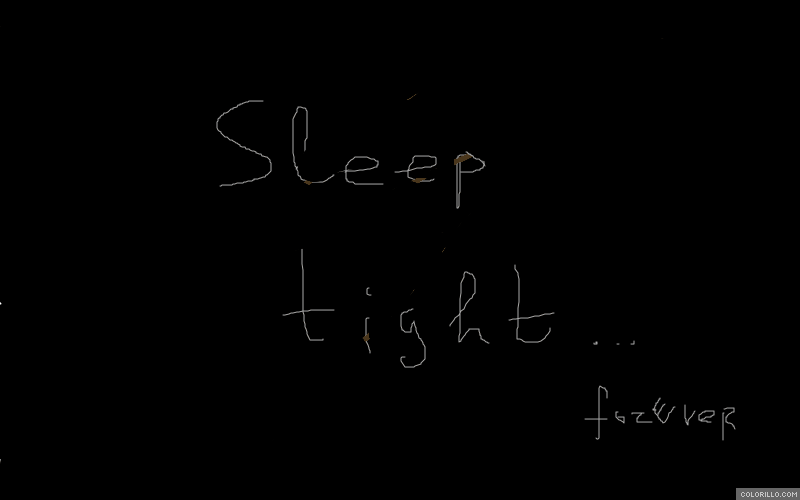 Sleep
tight...
forever
COLORILLO.COM